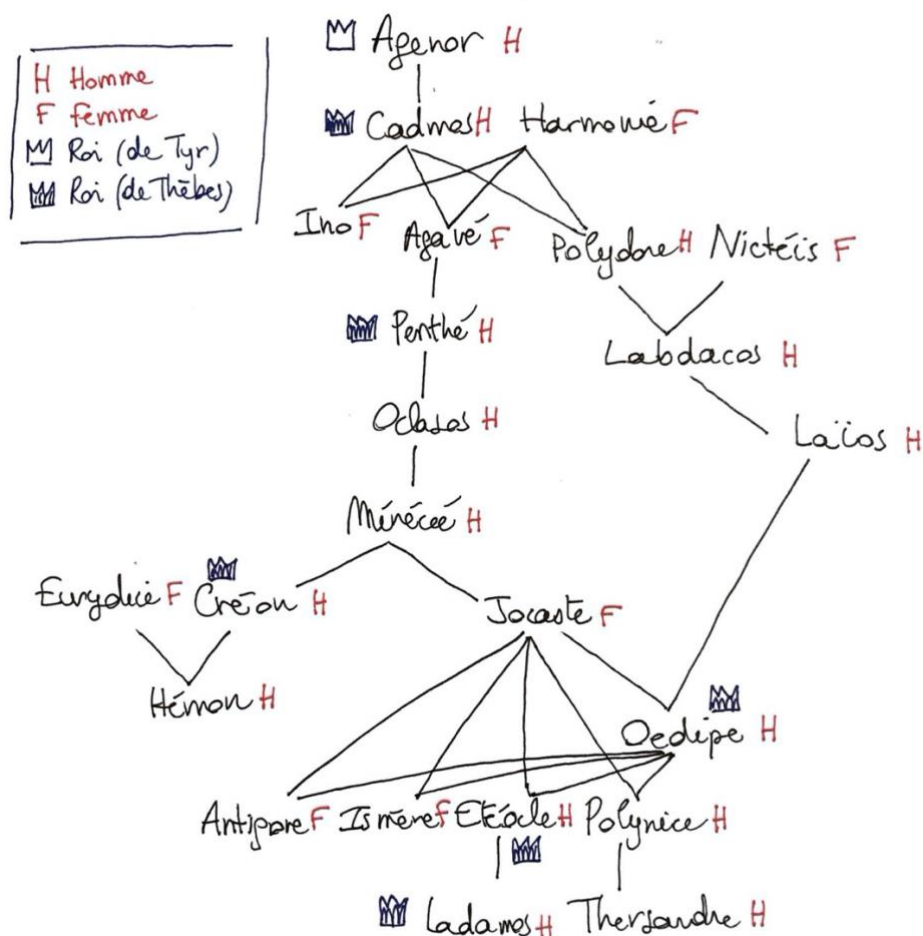 H Homme
F Femme
Roi (de Tyr)
Roi (de Thèbes)
Agenor H
Cadmos H Harmonié F
Ino F Agavé F Polydore H Nictéis F
Penthé H
Labdacos H
Oclasos H
Laïos H
Ménécée H
Eurydice F Créon H Jocaste F
Hémon H
Oedipe H
Antigone F Ismène F Etéocle H Polynice H
Ladamos H Thersandre H